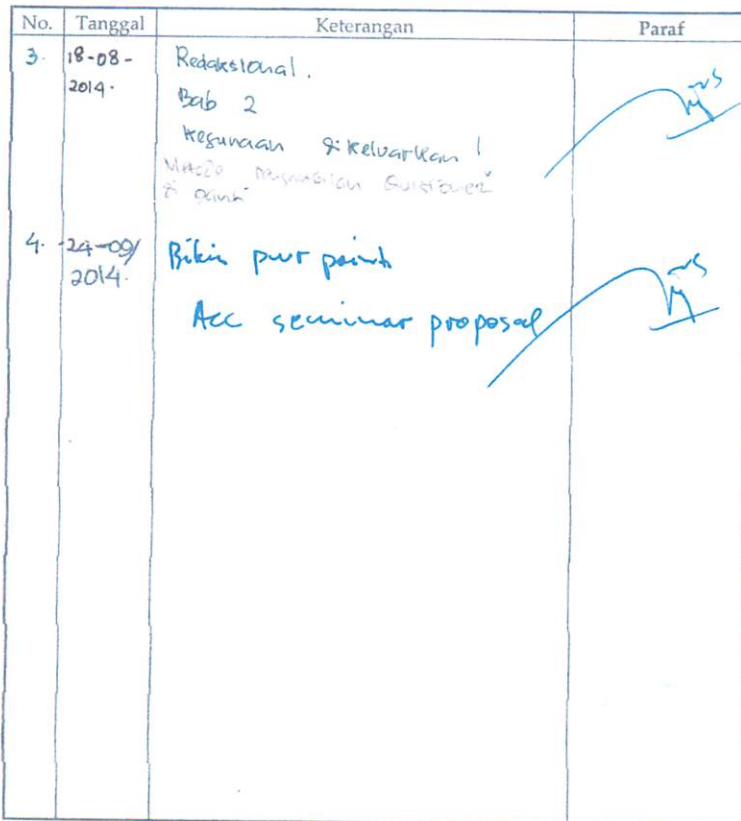 No. Tanggal Keterangan Paraf
3. 18-08-2014. Redaksional.
Bab 2
Kegunaan dikeluarkan!
Metode Kuisioner
di ganti
4. 24-09/2014. Bikin pwr point
Acc seminar proposal